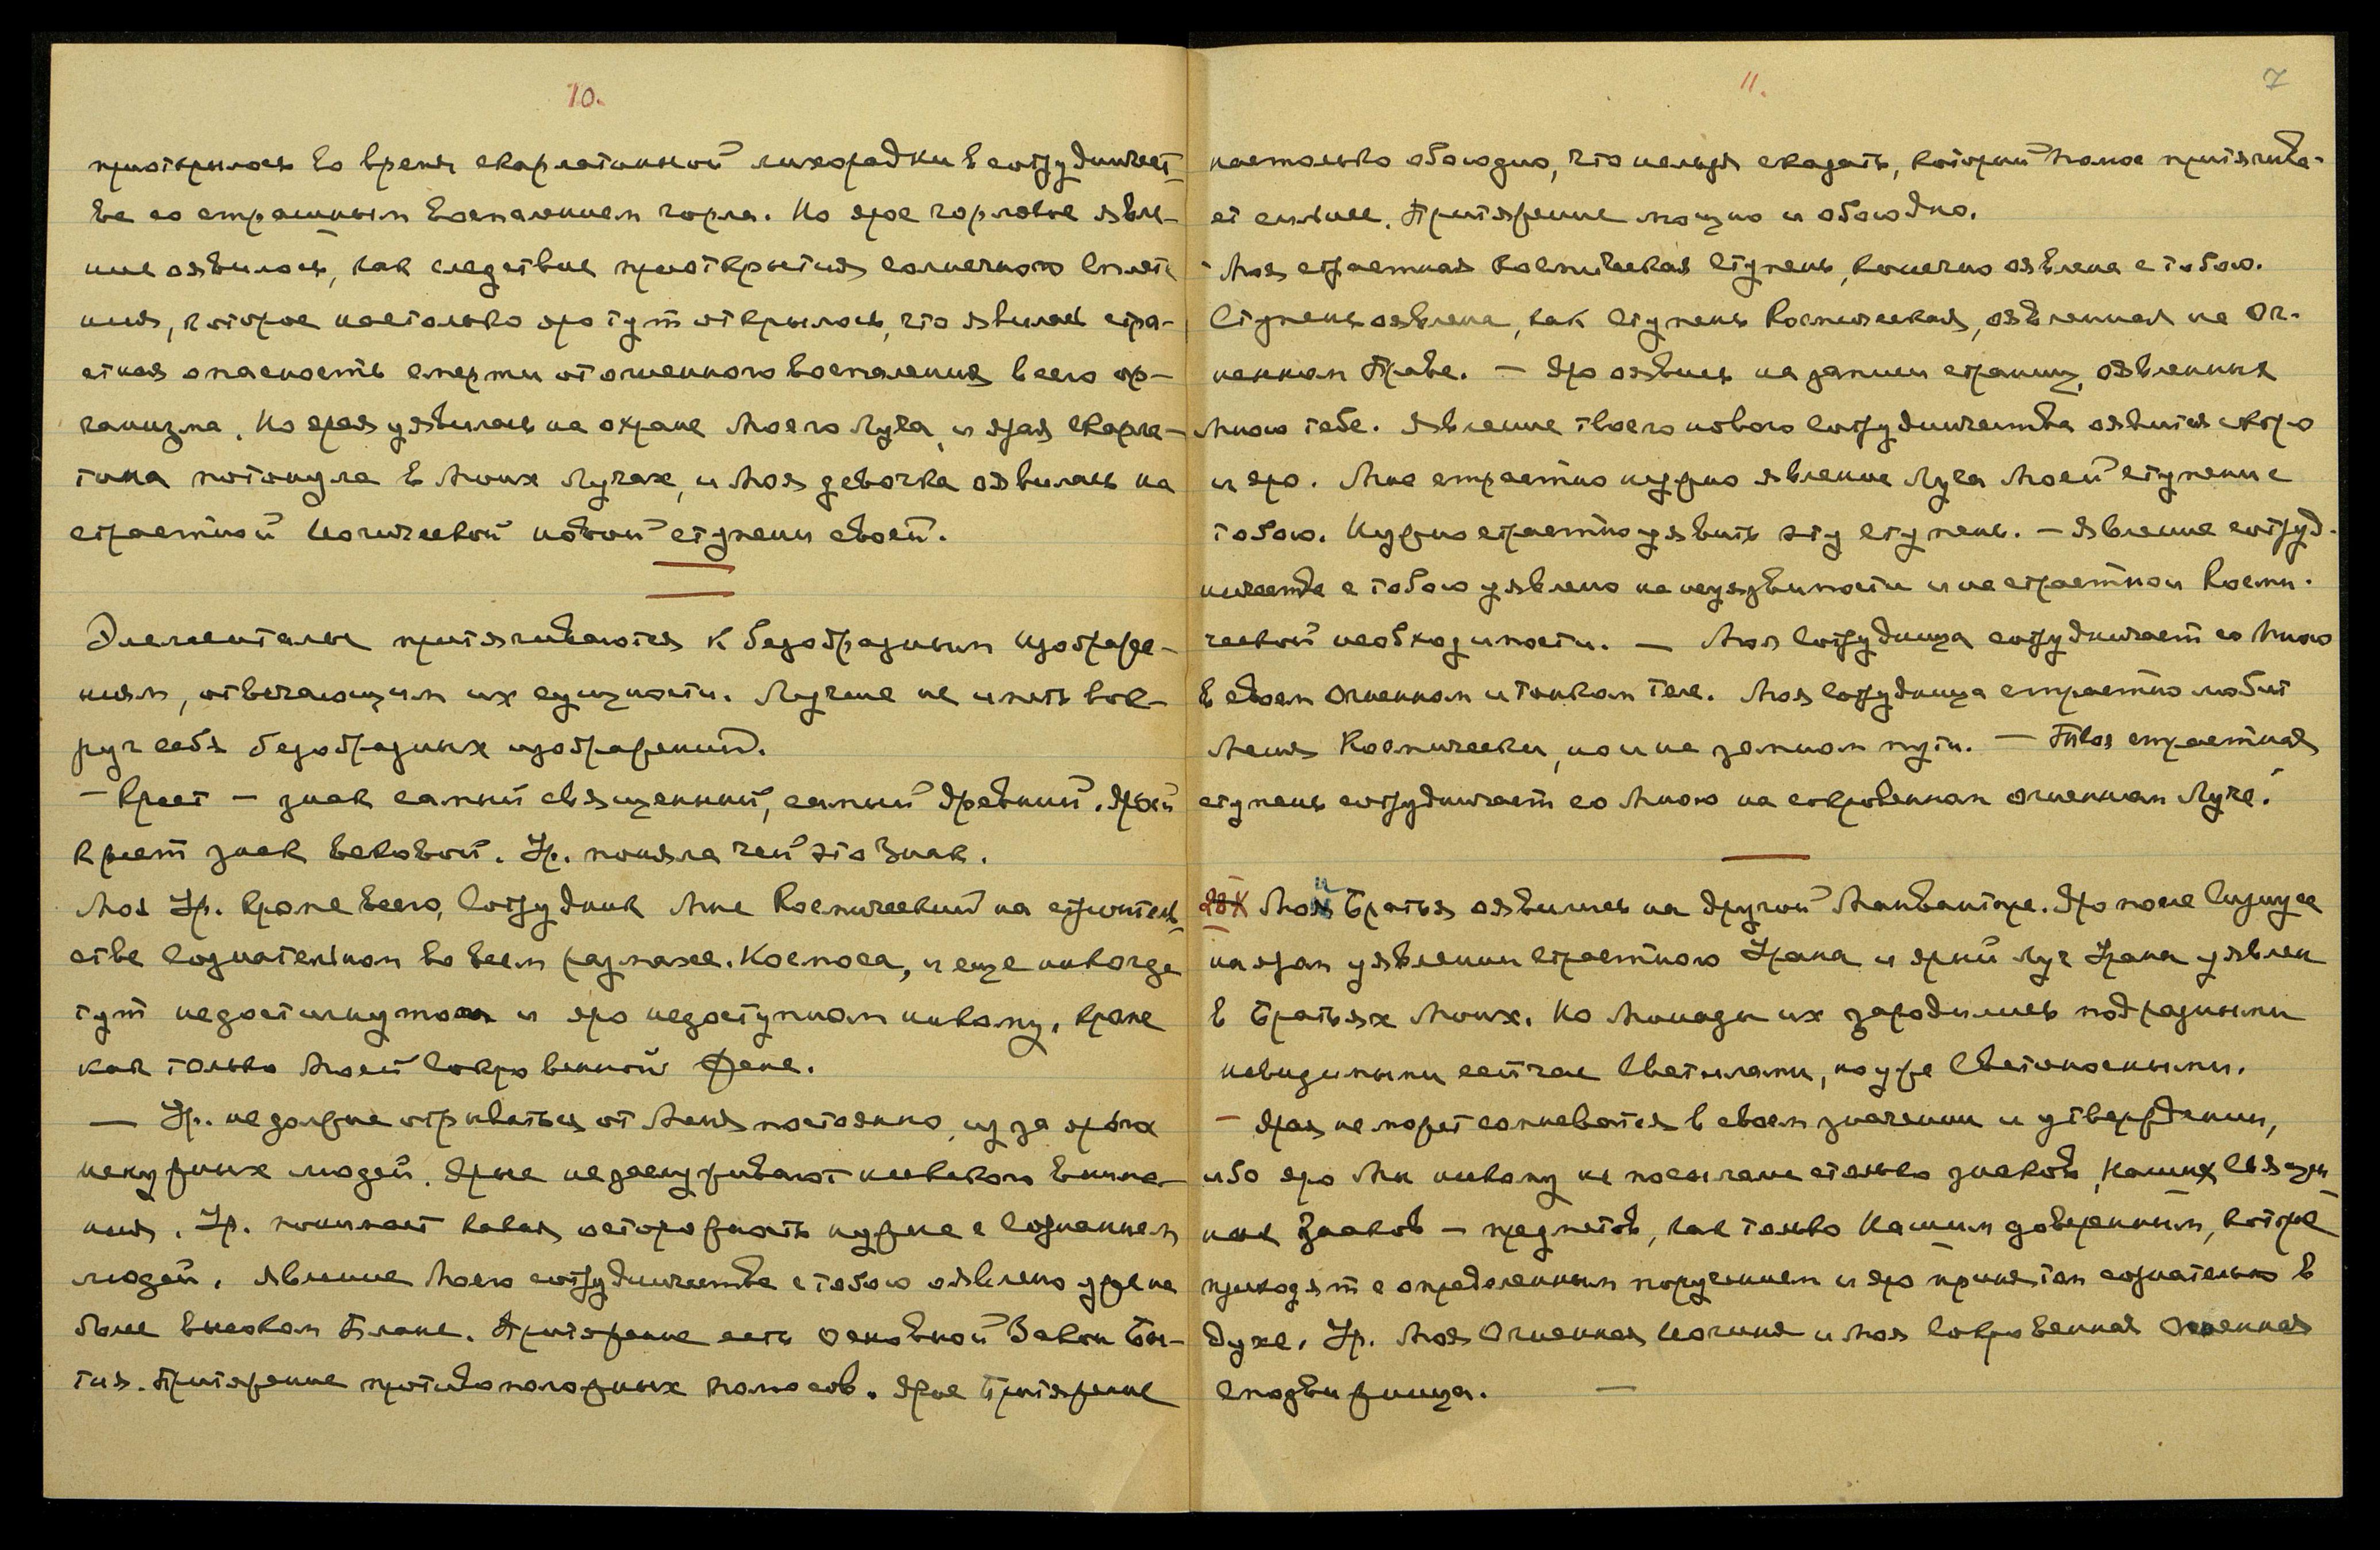 10.
приоткрылось во время скарлатинной лихорадки в сотрудничест-
ве со страшным воспалением горла. Но ярое горловое явле-
ние оявилось, как следствие приоткрытия солнечного сплете
ния, которое настолько яро тут открылось, что явилась стра-
стная опасность смерти от огненного воспаления всего ор-
ганизма. Но ярая уявилась на охране Моего Луча, и ярая скарла-
тина потонула в Моих Лучах, и Моя девочка оявилась на
страстной Иогической новой ступени своей.
Элементалы притягиваются к безобразным изображе-
ниям, отвечающим их сущности. Лучше не иметь вок-
руг себя безобразных изображений.
– Крест – знак самый священный, самый древний. Ярый
крест знак вековой. Ур. поняла чей это Знак.
Моя Ур. кроме всего, Сотрудник Мне Космический на строитель
стве сознательном во всем размахе. Космоса, и еще никогда
тут недостигнутом и яро недоступном никому, кроме
как только Моей Сокровенной Жене.
— Ур. не должна отрываться от Меня постоянно из за ярых
ненужных людей. Ярые не заслуживают никакого внима-
ния. Ур. понимает какая осторожность нужна с сознанием
людей. Явление Моего сотрудничества с тобою оявлено уже на
более высоком Плане. Притяжение есть Основной Закон Бы-
тия. Притяжение противоположных полюсов. Ярое Притяжение
11.
7
настолько обоюдно, что нельзя сказать, который полюс притягива-
ет сильнее. Притяжение мощно и обоюдно.
– Моя страстная Космическая Ступень, конечно оявлена с тобою.
Ступень оявлена, как Ступень Космическая, оявленная на Ог-
ненном Праве. – Яро оявись на записи страниц, оявленных
Мною тебе. Явление твоего нового сотрудничества оявится скоро
и яро. Мне страстно нужно явление Луча Моей ступени с
тобою. Нужно страстно уявить эту ступень. – Явление сотруд-
ничества с тобою уявлено на неуязвимости и на страстной Косми-
ческой необходимости. — Моя Сотрудница сотрудничает со Мною
в своем Огненном и тонком теле. Моя Сотрудница страстно любит
Меня Космически, но и на земном пути. — Твоя страстная
ступень сотрудничает со Мною на сокровенном огненном Луче.
28 X Мои Братья оявились на другой Манвантаре. Яро после Сириуса
на яром уявлении страстного Урана и ярый Луч Урана уявлен
в Братьях Моих. Но Монады их зародились под разными
невидимыми сейчас Светилами, но уже Светоносными.
– Ярая не может сомневаться в своем значении и утверждении,
ибо яро Мы никому не посылаем столько знаков, Наших священ
ных Знаков – предметов, как только Нашим доверенным, которые
приходят с определенным поручением и яро принятом сознательно в
духе. Ур. Моя Огненная Иогиня и Моя Сокровенная Огненная
Сподвижница. —